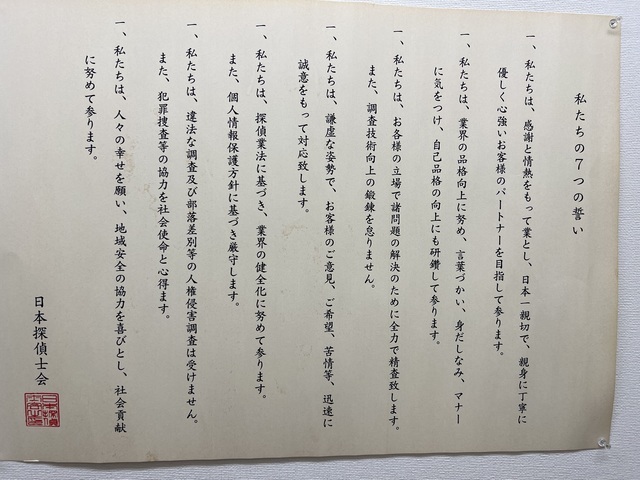 私たちの7つの誓い
一、私たちは、感謝と情熱をもって業とし、日本一親切で、親身に丁寧に
優しく心強いお客様のパートナーを目指して参ります。
一、私たちは、業界の品格向上に努め、言葉づかい、身だしなみ、マナー
に気をつけ、自己品格の向上にも研鑽して参ります。
一、私たちは、お客様の立場で諸問題の解決のために全力で精査致します。
また、調査技術向上の鍛錬を怠りません。
一、私たちは、謙虚な姿勢で、お客様のご意見、ご希望、苦情等、迅速に
誠意をもって対応致します。
一、私たちは、探偵業法に基づき、業界の健全化に努めて参ります。
また、個人情報保護方針に基づき厳守します。
一、私たちは、違法な調査及び部落差別等の人権侵害調査は受けません。
また、犯罪捜査等の協力を社会使命と心得ます。
一、私たちは、人々の幸せを願い、地域安全の協力を喜びとし、社会貢献
に努めて参ります。
日本探偵士会